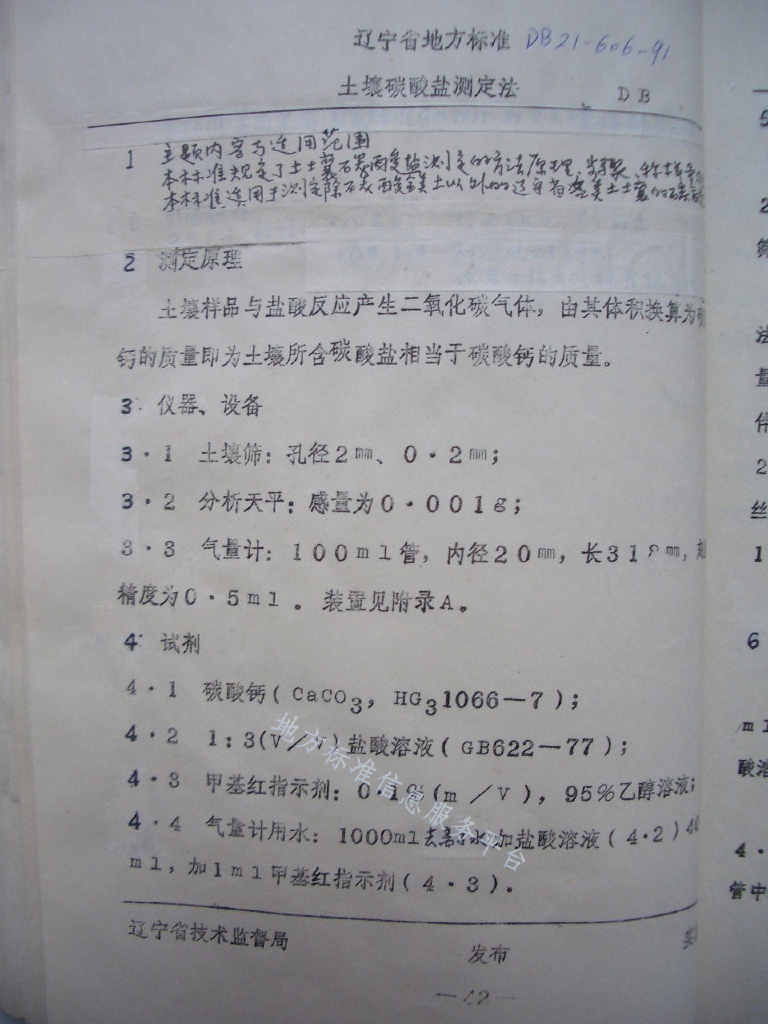 辽宁省地方标准 DB21-606-91
土壤碳酸盐测定法 DB
1 主题内容与适用范围
本标准规定了土壤碳酸盐测定的方法原理、步骤、
本标准适用于测定除碳酸镁土以外的辽宁省各类土壤的碳酸
2 测定原理
土壤样品与盐酸反应产生二氧化碳气体,由其体积换算为
钙的质量即为土壤所含碳酸盐相当于碳酸钙的质量。
3 仪器、设备
3·1 土壤筛:孔径2mm、0·2mm;
3·2 分析天平:感量为0·001g;
3·3 气量计:100ml管,内径20mm,长318mm,
精度为0·5ml。装置见附录A。
4 试剂
4·1 碳酸钙(CaCO3,HG31066—7);
4·2 1:3(V/V)盐酸溶液(GB622—77);
4·3 甲基红指示剂:0·1%(m/V),95%乙醇溶液;
4·4 气量计用水:1000ml去离子水加盐酸溶液(4·2)40
ml,加1ml甲基红指示剂(4·3)。
辽宁省技术监督局
发布
—42—
地方标准信息服务平台
5
2
法
量
2
丝
1
6
ml
酸溶
4·
管中